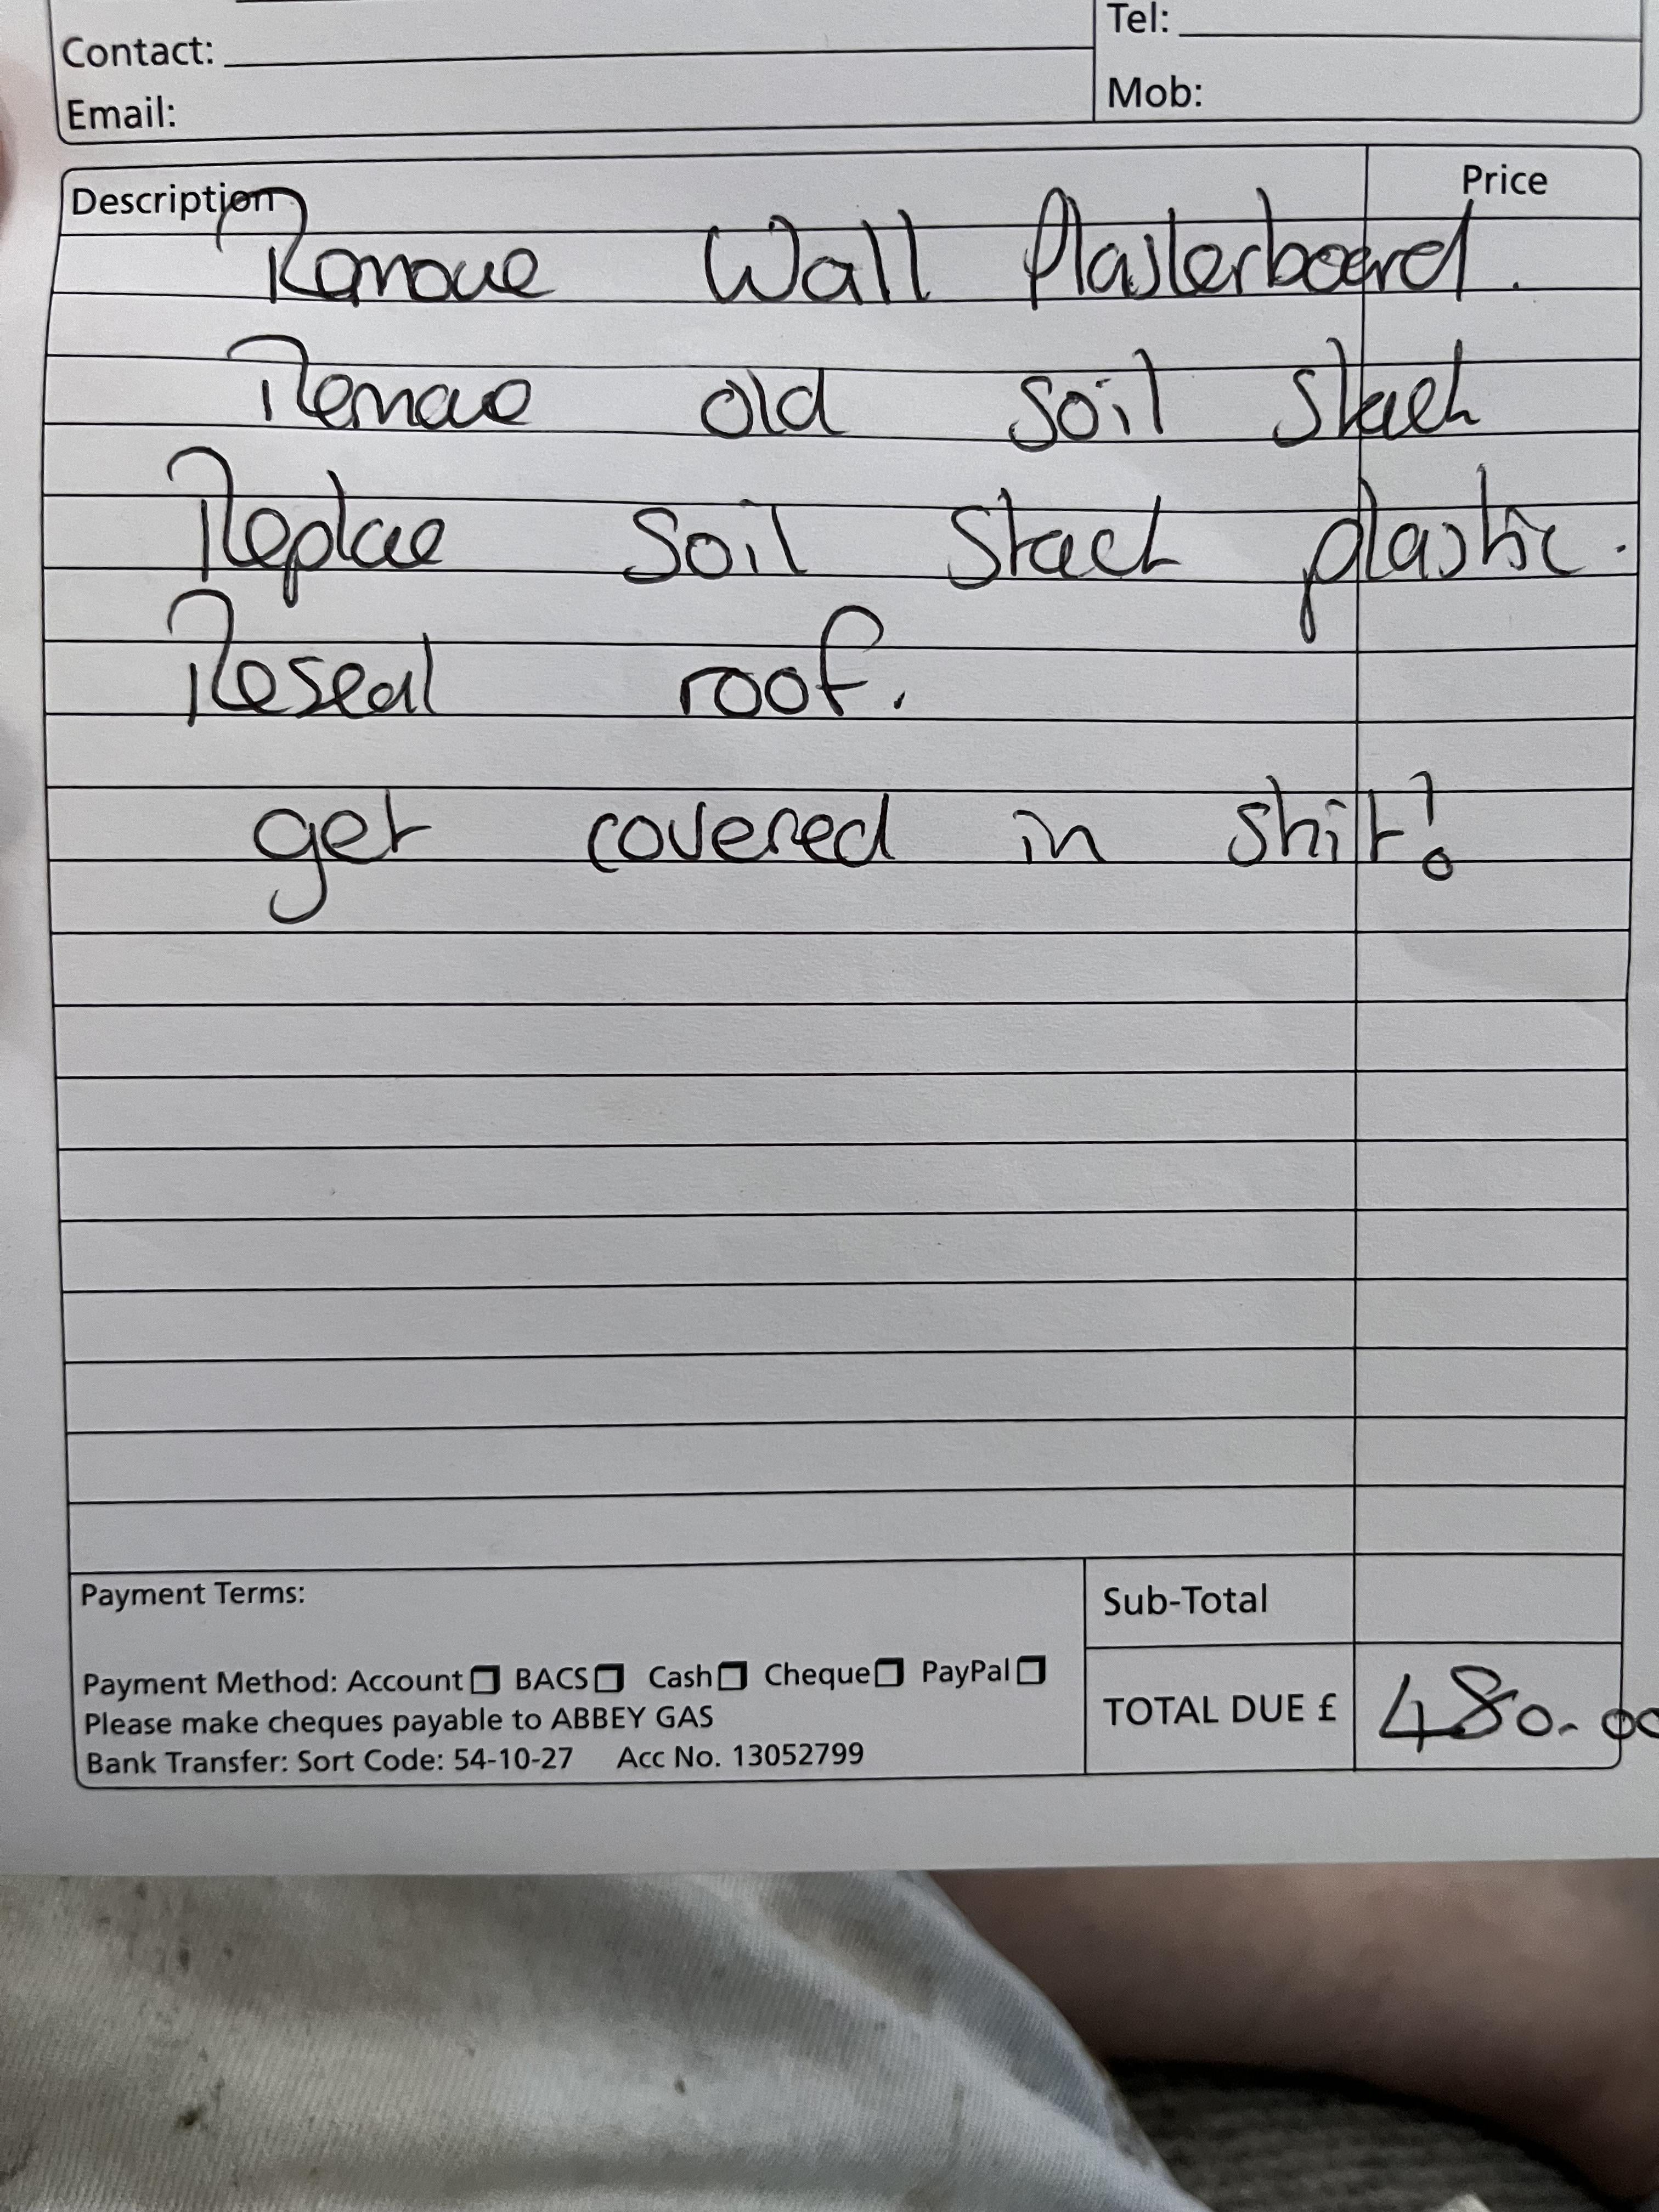 Tel:
Contact:
Email:
Mob:
Description
Price
Remove Wall Plasterboard.
Remove old soil stack
Replace soil stack plastic.
Reseal roof.
get covered in shit!
Payment Terms:
Sub-Total
Payment Method: Account BACS Cash Cheque PayPal
Please make cheques payable to ABBEY GAS
Bank Transfer: Sort Code: 54-10-27 Acc No. 13052799
TOTAL DUE £ 480.00